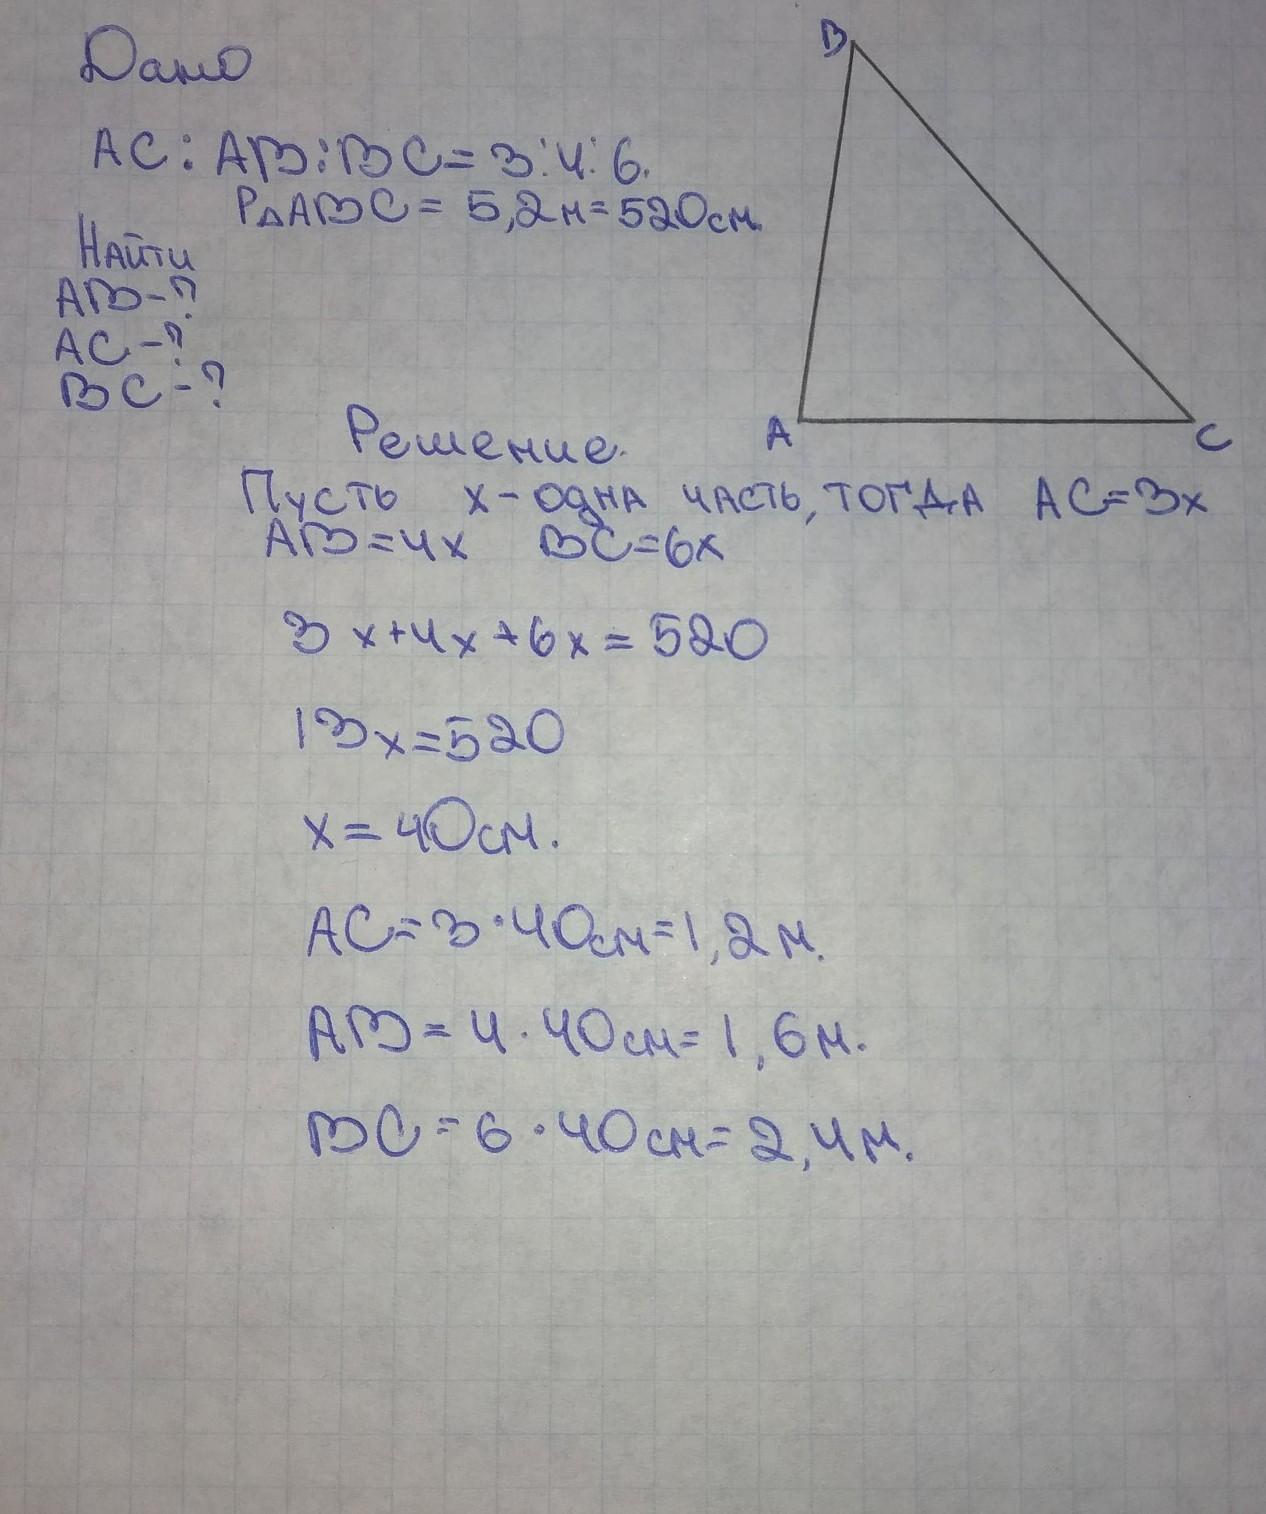 Дано
B
AC : AB : BC = 3 : 4 : 6.
P△ABC = 5,2м = 520см.
Найти
AB - ?
AC - ?
BC - ?
A
C
Решение.
Пусть x - одна часть, тогда AC = 3x
AB = 4x BC = 6x
3x + 4x + 6x = 520
13x = 520
x = 40см.
AC = 3 · 40см = 1,2м.
AB = 4 · 40см = 1,6м.
BC = 6 · 40см = 2,4м.